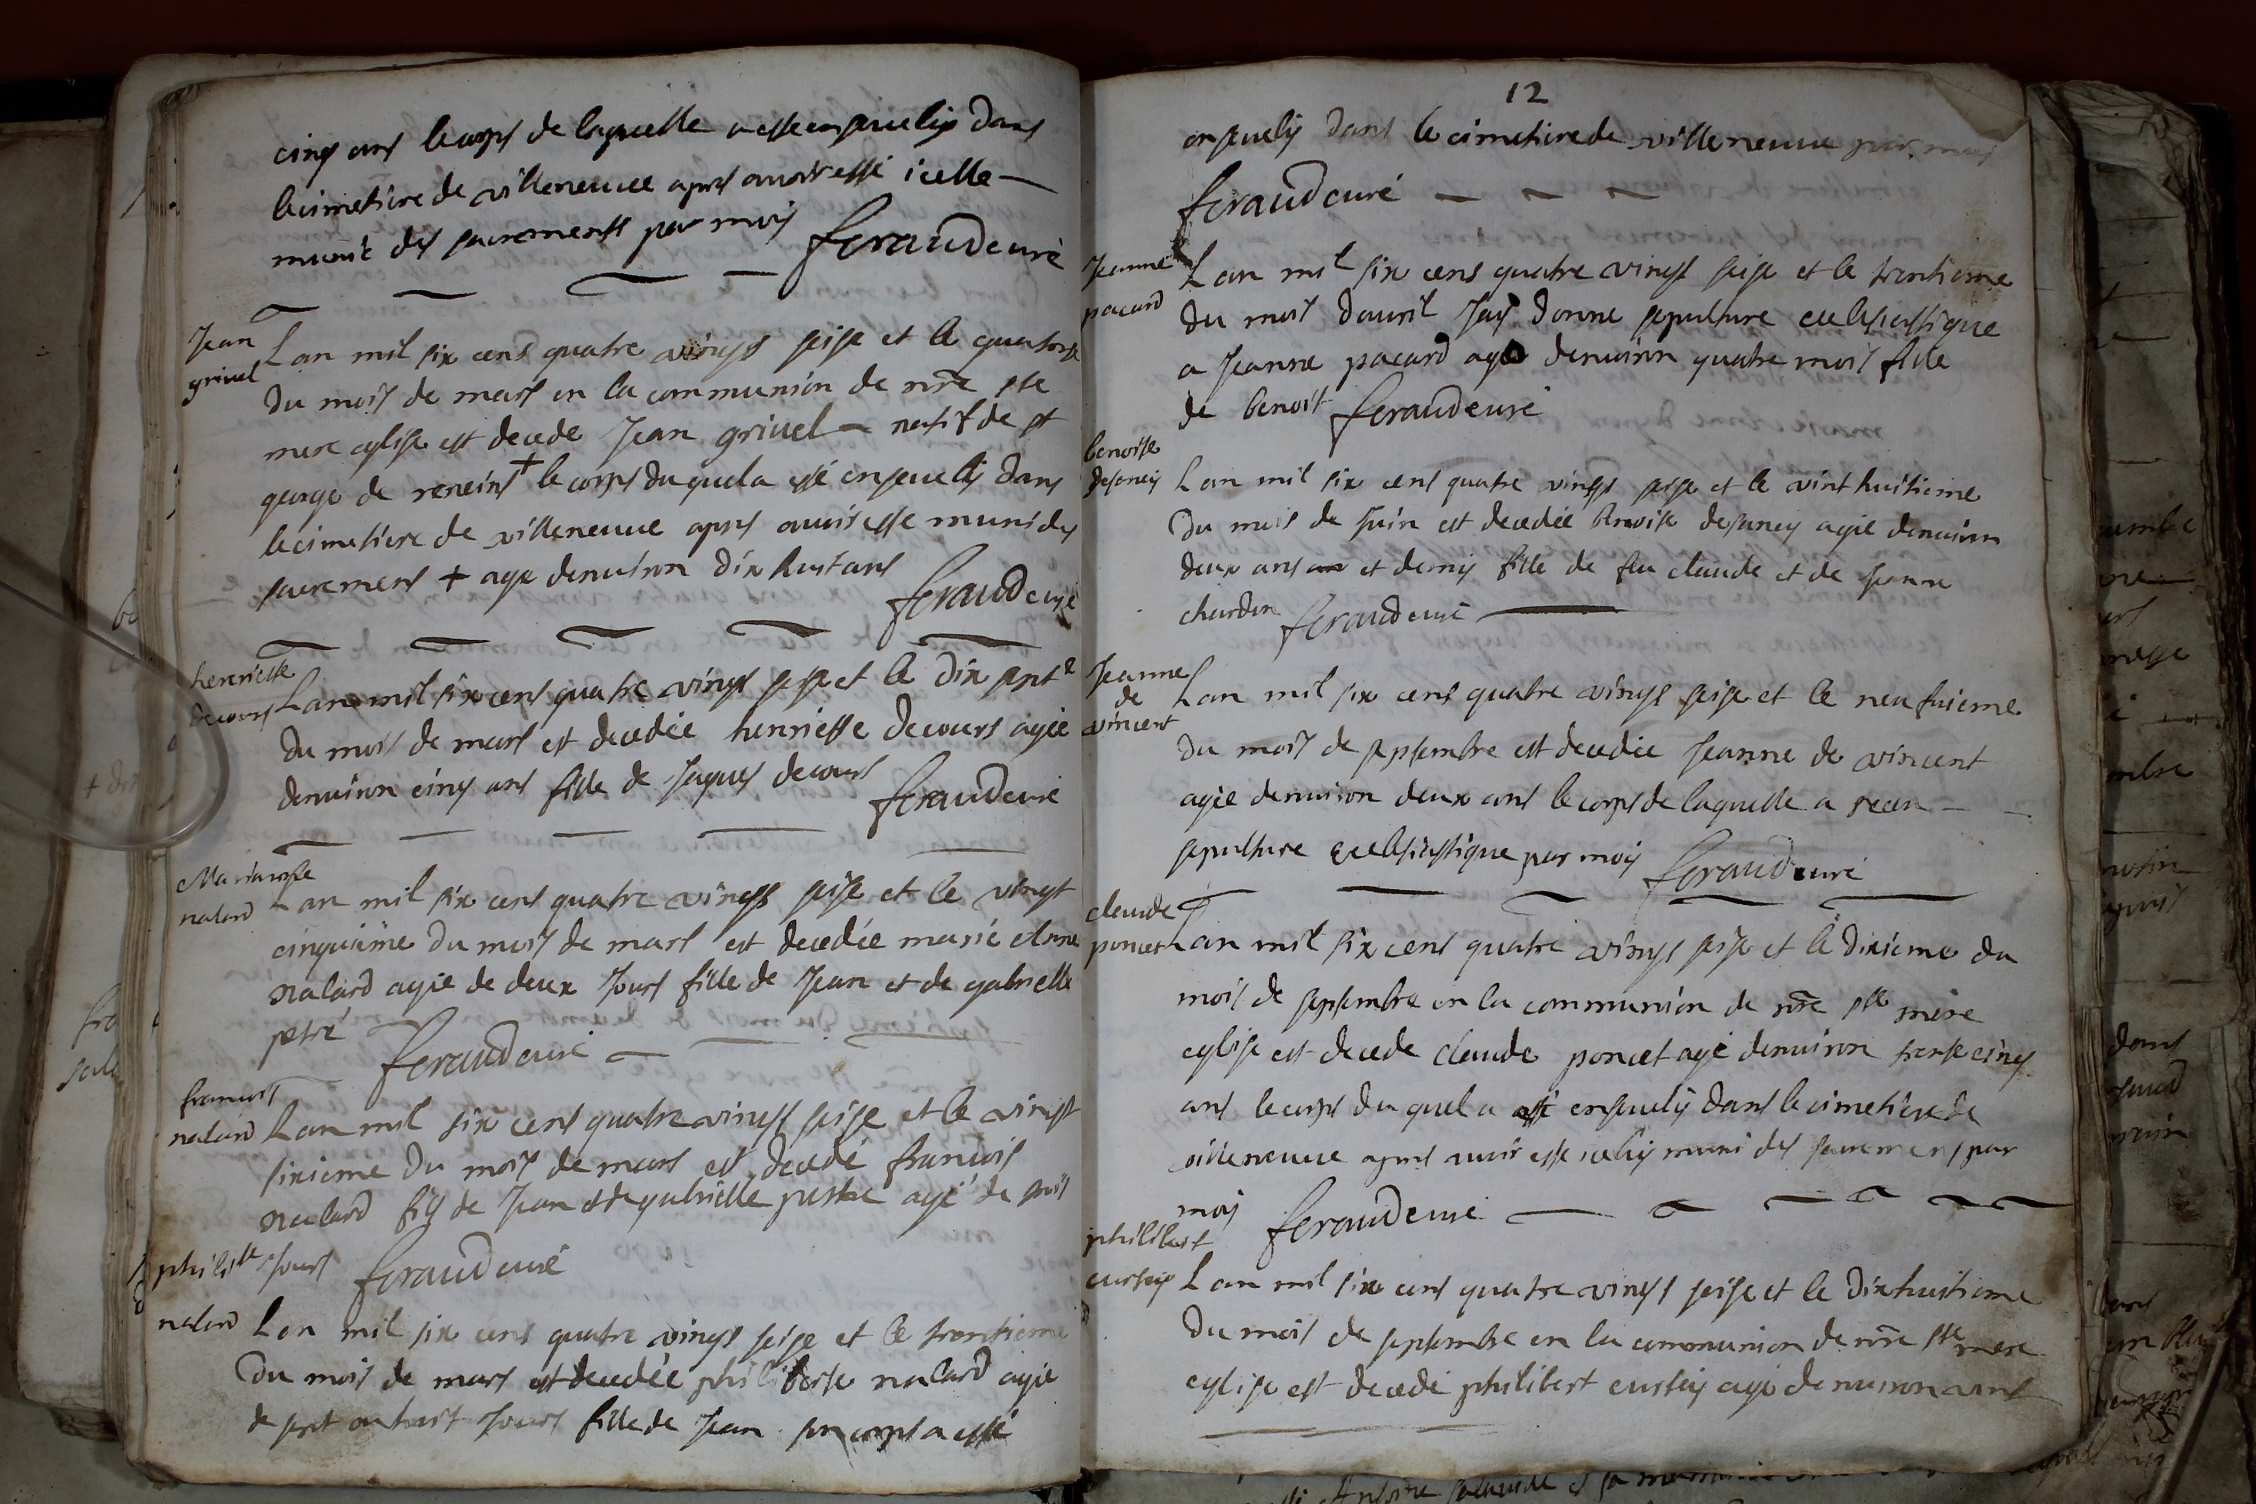 cinq ans le corps de laquelle a esté ensevely dans
le cimetiere de villeneuve apres avoir esté icelle
munie des sacrements par moy feraud curé
Jean
grivel
L an mil six cens quatre vingts seise et le quatorse
du mois de mars en la communion de nre ste
mere eglise est decede Jean grivel natif de st
george de reneins + le corps du quel a esté ensevely dans
le cimetiere de villeneuve apres avoir esté muni des
sacremens + age denviron dix huit ans feraud curé
henriette
decours
L an mil six cens quatre vingts seise et le dix sept e
du mois de mars est decedée henriette decours agée
denviron cinq ans fille de Jaques decours feraud curé
Marianne
nalard
L an mil six cens quatre vingts seise et le vingt
cinquième du mois de mars est decedée marie Anne
nalard agée de deux Jours fille de Jean et de gabrielle
petré feraud curé
francois
nalard
L an mil six cens quatre vingts seise et le vingt
sixieme du mois de mars est decedé francois
nalard fils de Jean et de gabrielle petre agé de trois
Jours feraud curé
philibte
nalard
L an mil six cens quatre vingts seise et le trentieme
du mois de mars est decedée philiberte nalard agée
de sept ou huit Jours fille de Jean son corps a esté
12
ensevely dans le cimetiere de villeneuve par moy
feraud curé
Jeanne
pacard
L an mil six cens quatre vingts seise et le trentieme
du mois davril Jay donne sepulture eclesiastique
a Jeanne pacard age denviron quatre mois fille
de benoit feraud curé
benoite
dejoney
L an mil six cens quatre vingts seise et le vint huitieme
du mois de Juin est decedée benoite dejuney agée denviron
deux ans et demy fille de feu claude et de Jeanne
chardon feraud curé
Jeanne
de
vincent
L an mil six cens quatre vingts seise et le neufvieme
du mois de septembre est decedée Jeanne de vincent
agée denviron deux ans le corps de laquelle a receu
sepulture eclesiastique par moy feraud curé
claude
poncet
L an mil six cens quatre vingts seise et le dixieme du
mois de septembre en la communion de nre ste mere
eglise est decede claude poncet agé denviron trente cinq
ans le corps du quel a esté ensevely dans le cimetiere de
villeneuve apres avoir esté iceluy muni des sacremens par
moy feraud curé
philibert
curtey
L an mil six cens quatre vingts seise et le dixhuitieme
du mois de septembre en la communion de nre ste mere
eglise est decedé philibert curtey agé denviron vint